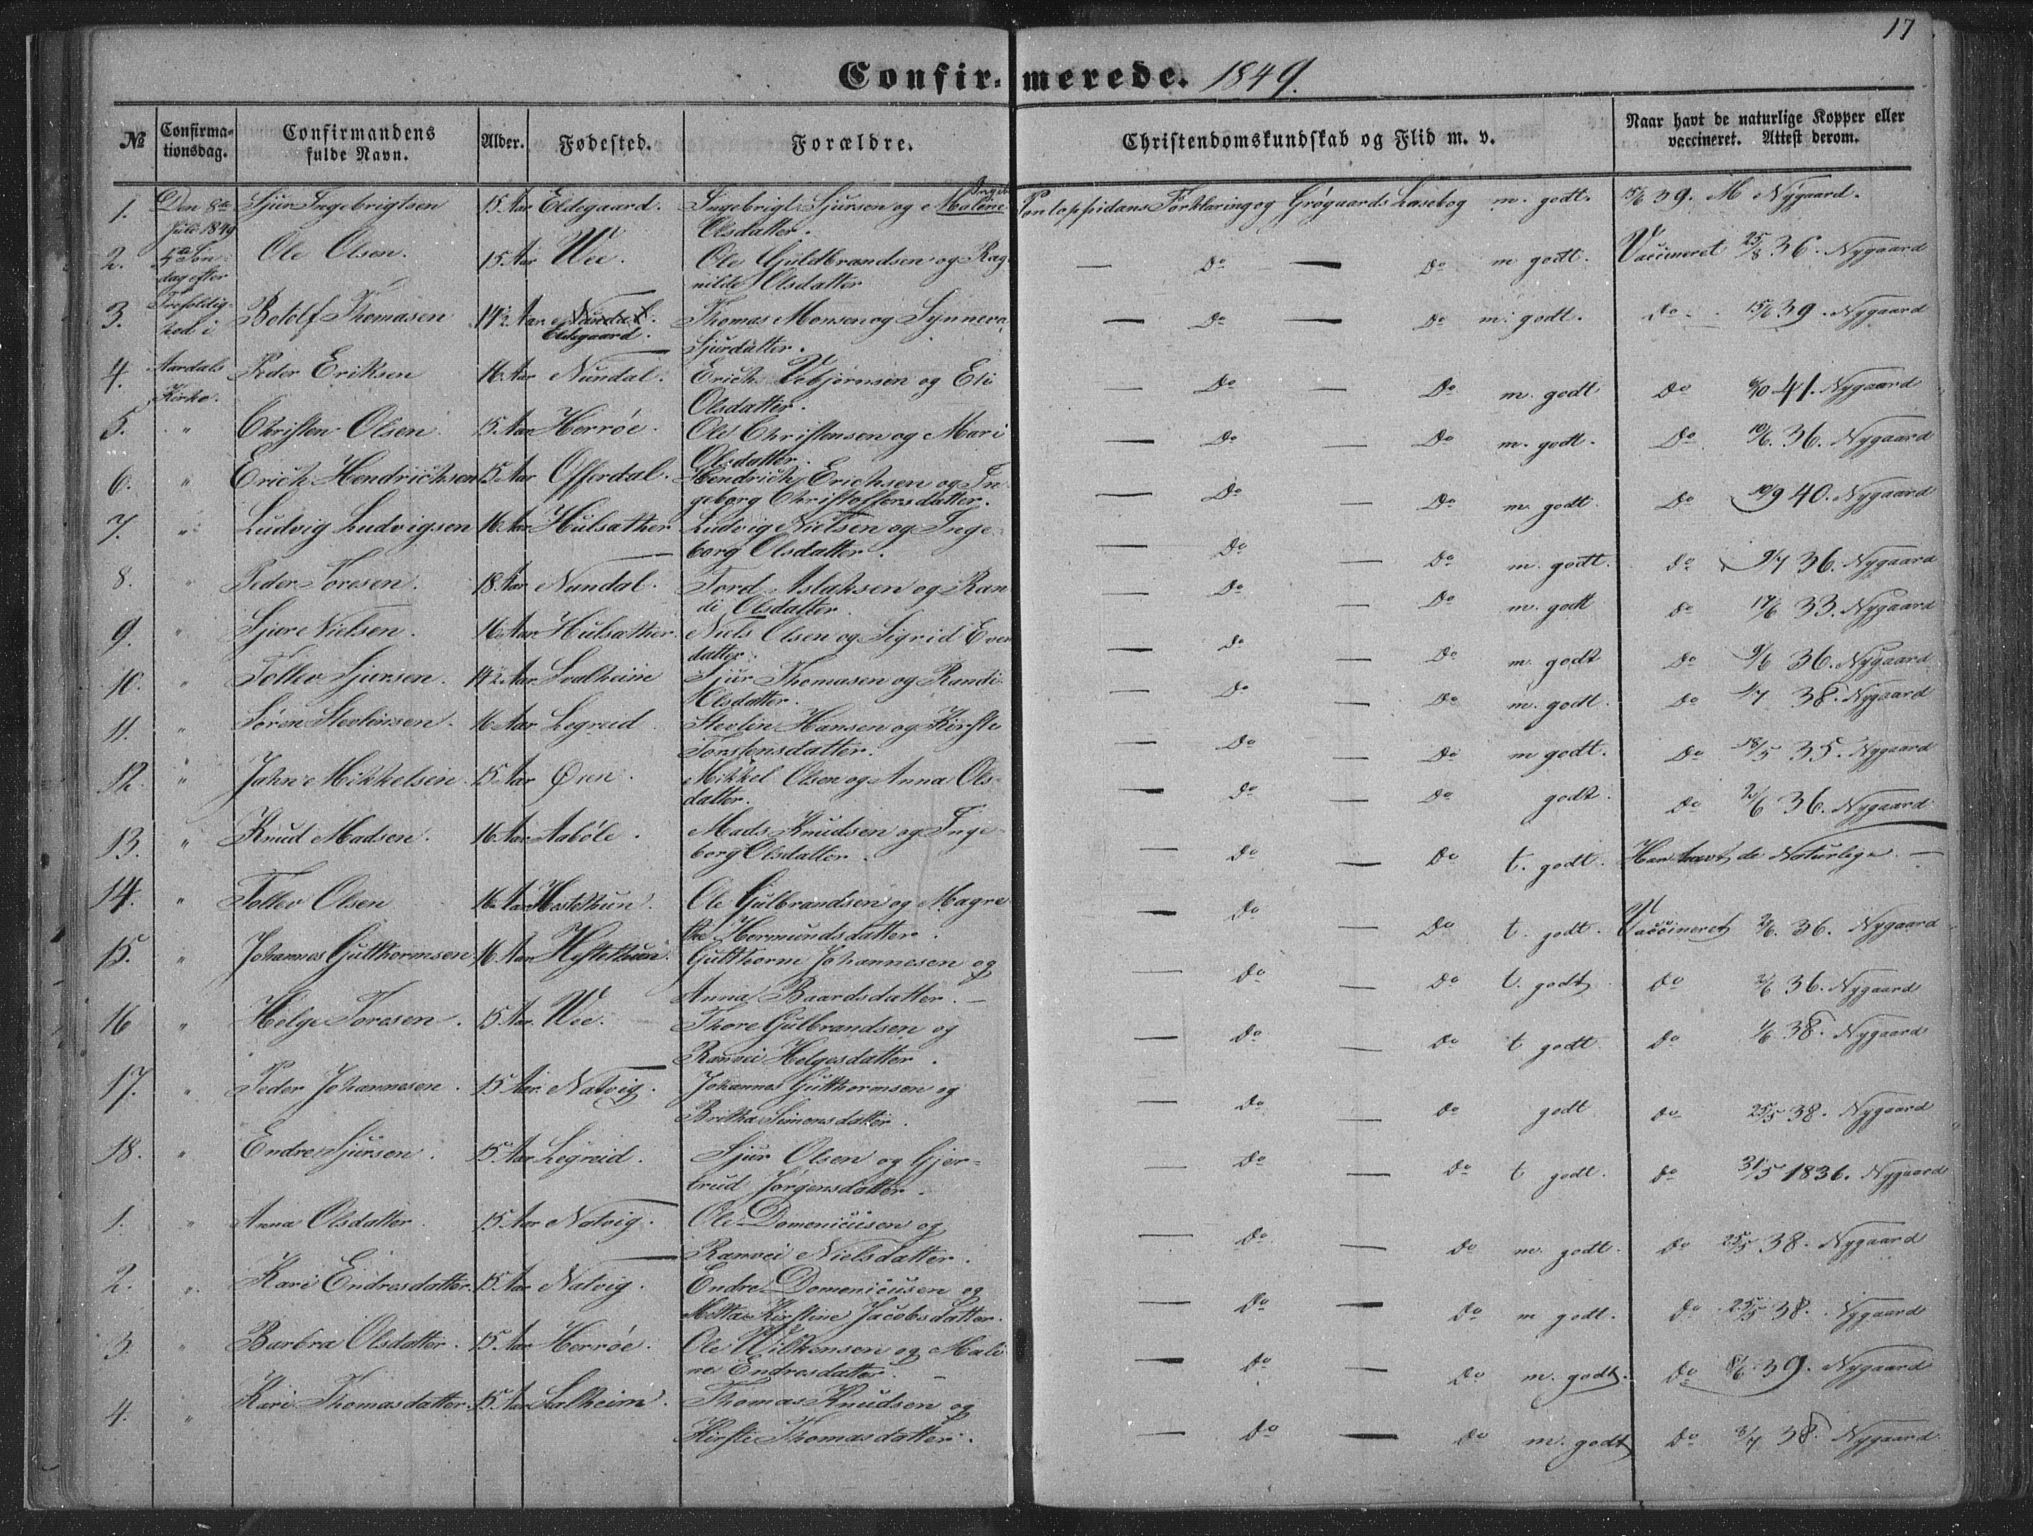 17
Confirmerede. 1849.
№ Confirmationsdag. Confirmandens fulde Navn. Alder. Fødested. Forældre. Christendomskundskab og Flid m. v. Naar havt de naturlige Kopper eller vaccineret. Attest derom.
1. Den 8de Juli 1849 Sjur Ingebrigtsen 15 Aar Eldegaard. Ingebrigt Sjursen og Malene Olsdatter. Pontoppidans Forklaring og Grøgaards Læsebog m. godt. 39. M Nygaard.
2. 5te Søndag efter Ole Olsen. 15 Aar Vee. Ole Guldbrandsen og Ragnilde Olsdatter — Do — Do m godt. Vaccineret 25/8 36. Nygaard
3. Trefoldighed. i Botolf Thomasen 14½ Aar Nundal. Eldegaard. Thomas Monsen og Synneva Sjurdatter. — Do — Do m. godt. Do 15/6 39. Nygaard
4. Aardals Kirke. Peder Eriksen 16 Aar Nundal. Erich Vebjørnsen og Eli Olsdatter. — Do — Do m. godt Do 41. Nygaard
5. " Christen Olsen 15 Aar Herrøe. Ole Christensen og Mari Olsdatter. — Do — Do m. godt. Do 19/6. 36. Nygaard
6. " Erich Hendrichsen 15 Aar Offerdal. Hendrich Erichsen og Ingeborg Christoffersdatter. — Do — Do m. godt Do 10/9 40. Nygaard
7. " Ludvig Ludvigsen 16 Aar Hulsather Ludvig Nielsen og Ingeborg Olsdatter. — Do — Do m. godt. Do 9/7 36. Nygaard
8. " Peder Toresen. 18 Aar Nundal. Tord Aslaksen og Randi Olsdatter. — Do — Do m. godt Do 17/6 33. Nygaard
9. " Sjur Nielsen. 16 Aar Hulsather. Niels Olsen og Sigrid datter. — Do — Do m. godt Do 9/6 36. Nygaard
10. " Tollev Sjursen. 14½ Aar Svalheim Sjur Thomasen og Randi Olsdatter. — Do — Do m. godt. Do 38. Nygaard
11. " Søren Stevlinsen. 16 Aar Legreid Stevlin Hansen og Kirsti Torstensdatter. — Do — Do m godt. Do 18/5 35. Nygaard
12. " John Mikkelsen. 15 Aar Øien. Mikkel Olsen og Anna Olsdatter. — Do — Do godt. Do 2/6 36. Nygaard
13. " Knud Madsen. 16 Aar Aabøle. Mads Knudsen og Ingeborg Olsdatter. — Do — Do t. godt. Har havt de Naturlige. —
14. " Tollev Olsen 16 Aar Hestethun. Ole Gulbrandsen og Magrethe Hermundsdatter. — Do — Do t. godt. Vaccineret 2/6. 36. Nygaard
15. " Johannes Gutthormsen 16 Aar Hestethun. Gutthorm Johannesen og Anna Baardsdatter. — — Do — Do t. godt Do 2/6 36. Nygaard
16 " Helge Toresen. 15 Aar. Vee. Thore Gulbrandsen og Ranvei Helgesdatter. — Do — Do t godt Do 1/6 38. Nygaard
17. " Peder Johannesen. 15 Aar. Natvig. Johannes Gutthormsen og Britha Simonsdatter. — Do — Do godt Do 25/5 38. Nygaard
18. " Endre Sjursen. 15 Aar Legreid. Sjur Olsen og Gjertrud Jørgensdatter. — Do — Do t godt. Do 31/5 1836. Nygaard
1. " Anna Olsdatter. 15 Aar Natvig. Ole Domenicusen og Ranvei Nielsdatter. — Do — Do m. godt. Do 25/5 38. Nygaard
2. " Kari Endresdatter. 15 Aar Natvig. Endre Domenicusen og Metta Kirstine Jacobsdatter. — Do — Do m godt. Do 25/5 38. Nygaard
3. " Barbra Olsdatter. 15 Aar Herrøe. Ole Wilkensen og Maline Endresdatter. — — Do — Do m. godt. Do 8/6 39. Nygaard
4. " Kari Thomasdatter. 15 Aar Salheim. Thomas Knudsen og Kirsti Thomasdatter. — Do — Do m. godt Do 3/7 38. Nygaard